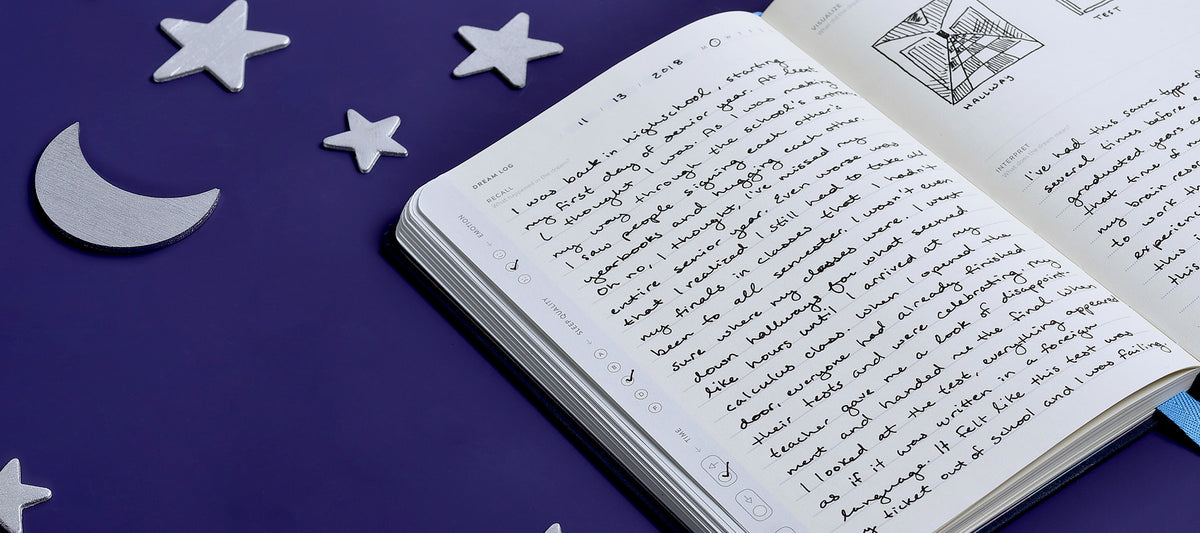 11 13 2018
DREAM LOG
RECALL
What happened in the dream?
I was back in highschool, starting
my first day of senior year. At least
I thought I was. As I was making
my way through the school's
I saw people signing each other's
yearbooks and hugging each other.
Oh no, I thought, I've missed my
entire senior year. Even worse was
that I realized I still had to take all
my finals in classes that I hadn't
been to all semester. I wasn't even
sure where my classes were. I went
down hallways for what seemed
like hours until I arrived at my
calculus class. When I opened the
door, everyone had already finished
their tests and were celebrating. My
teacher gave me a look of disappoint-
ment and handed me the final. When
I looked at the test, everything appeared
as if it was written in a foreign
language. It felt like this test was
my ticket out of school and I was failing
EMOTION
SLEEP QUALITY
TIME
VISUALIZE
HALLWAY
TEST
INTERPRET
What does the dream mean?
I've had this same type
several times before
graduated years
that time of
my brain
to work
this